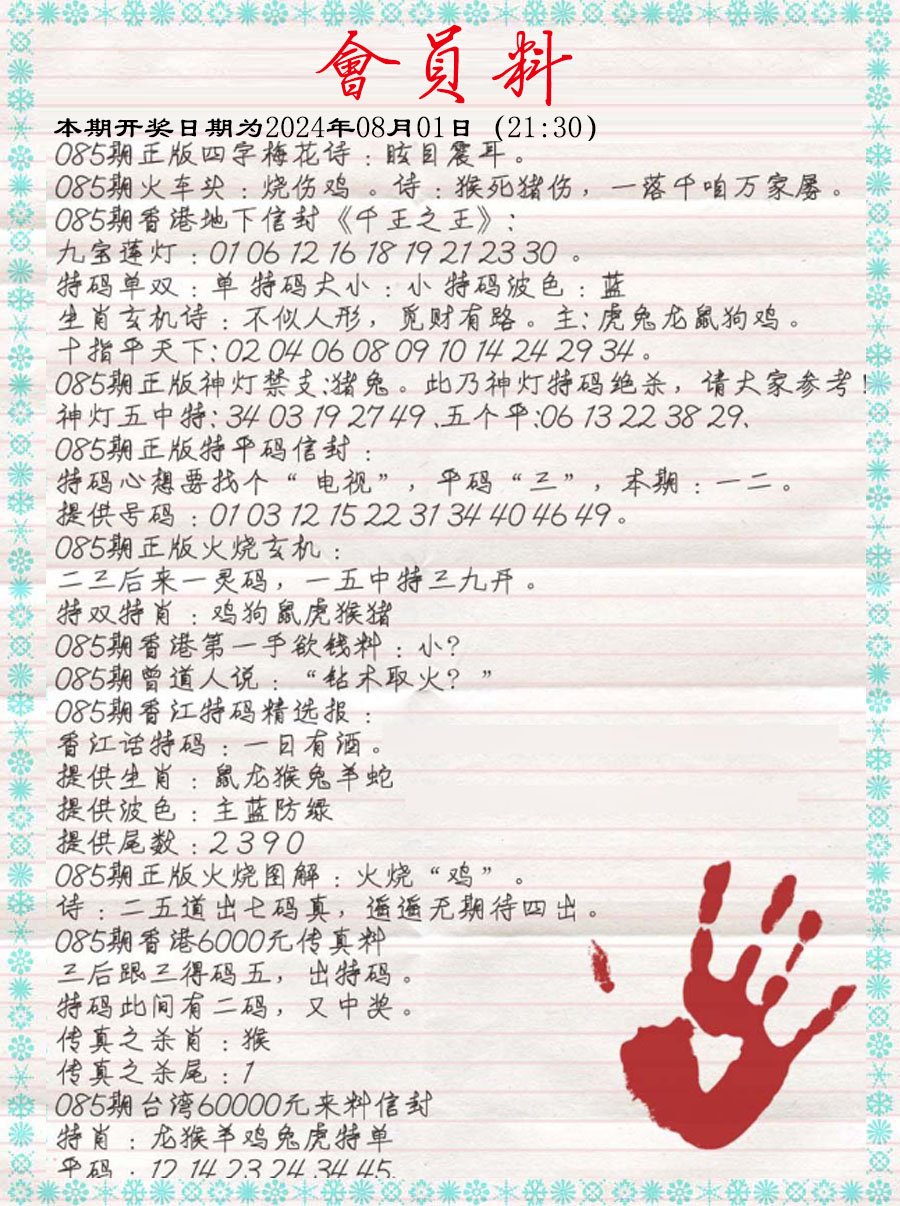 會員料
本期开奖日期为2024年08月01日（21:30）
085期正版四字梅花诗：眩目震耳。
085期火车头：烧伤鸡 。诗：猴死猪伤，一落千咱万家屡。
085期香港地下信封《千王之王》:
九宝莲灯：01 06 12 16 18 19 21 23 30 。
特码单双：单 特码大小：小 特码波色：蓝
生肖玄机诗：不似人形，觅财有路。主:虎兔龙鼠狗鸡。
十指平天下:02 04 06 08 09 10 14 24 29 34。
085期正版神灯禁支:猪兔。此乃神灯特码绝杀，请大家参考！
神灯五中特:34 03 19 27 49、五个平:06 13 22 38 29、
085期正版特平码信封：
特码心想要找个“电视”，平码“三”，本期：一二。
提供号码：01 03 12 15 22 31 34 40 46 49。
085期正版火烧玄机：
二三后来一灵码，一五中特三九开。
特双特肖：鸡狗鼠虎猴猪
085期香港第一手欲钱料：小？
085期曾道人说：“钻木取火？”
085期香江特码精选报：
香江话特码：一日有酒。
提供生肖：鼠龙猴兔羊蛇
提供波色：主蓝防绿
提供尾数：2 3 9 0
085期正版火烧图解：火烧“鸡”。
诗：二五道出七码真，遥遥无期待四出。
085期香港6000元传真料
三后跟三得码五，出特码。
特码此间有二码，又中奖。
传真之杀肖：猴
传真之杀尾：1
085期台湾60000元来料信封
特肖：龙猴羊鸡兔虎特单
平码：12 14 23 24 34 45、